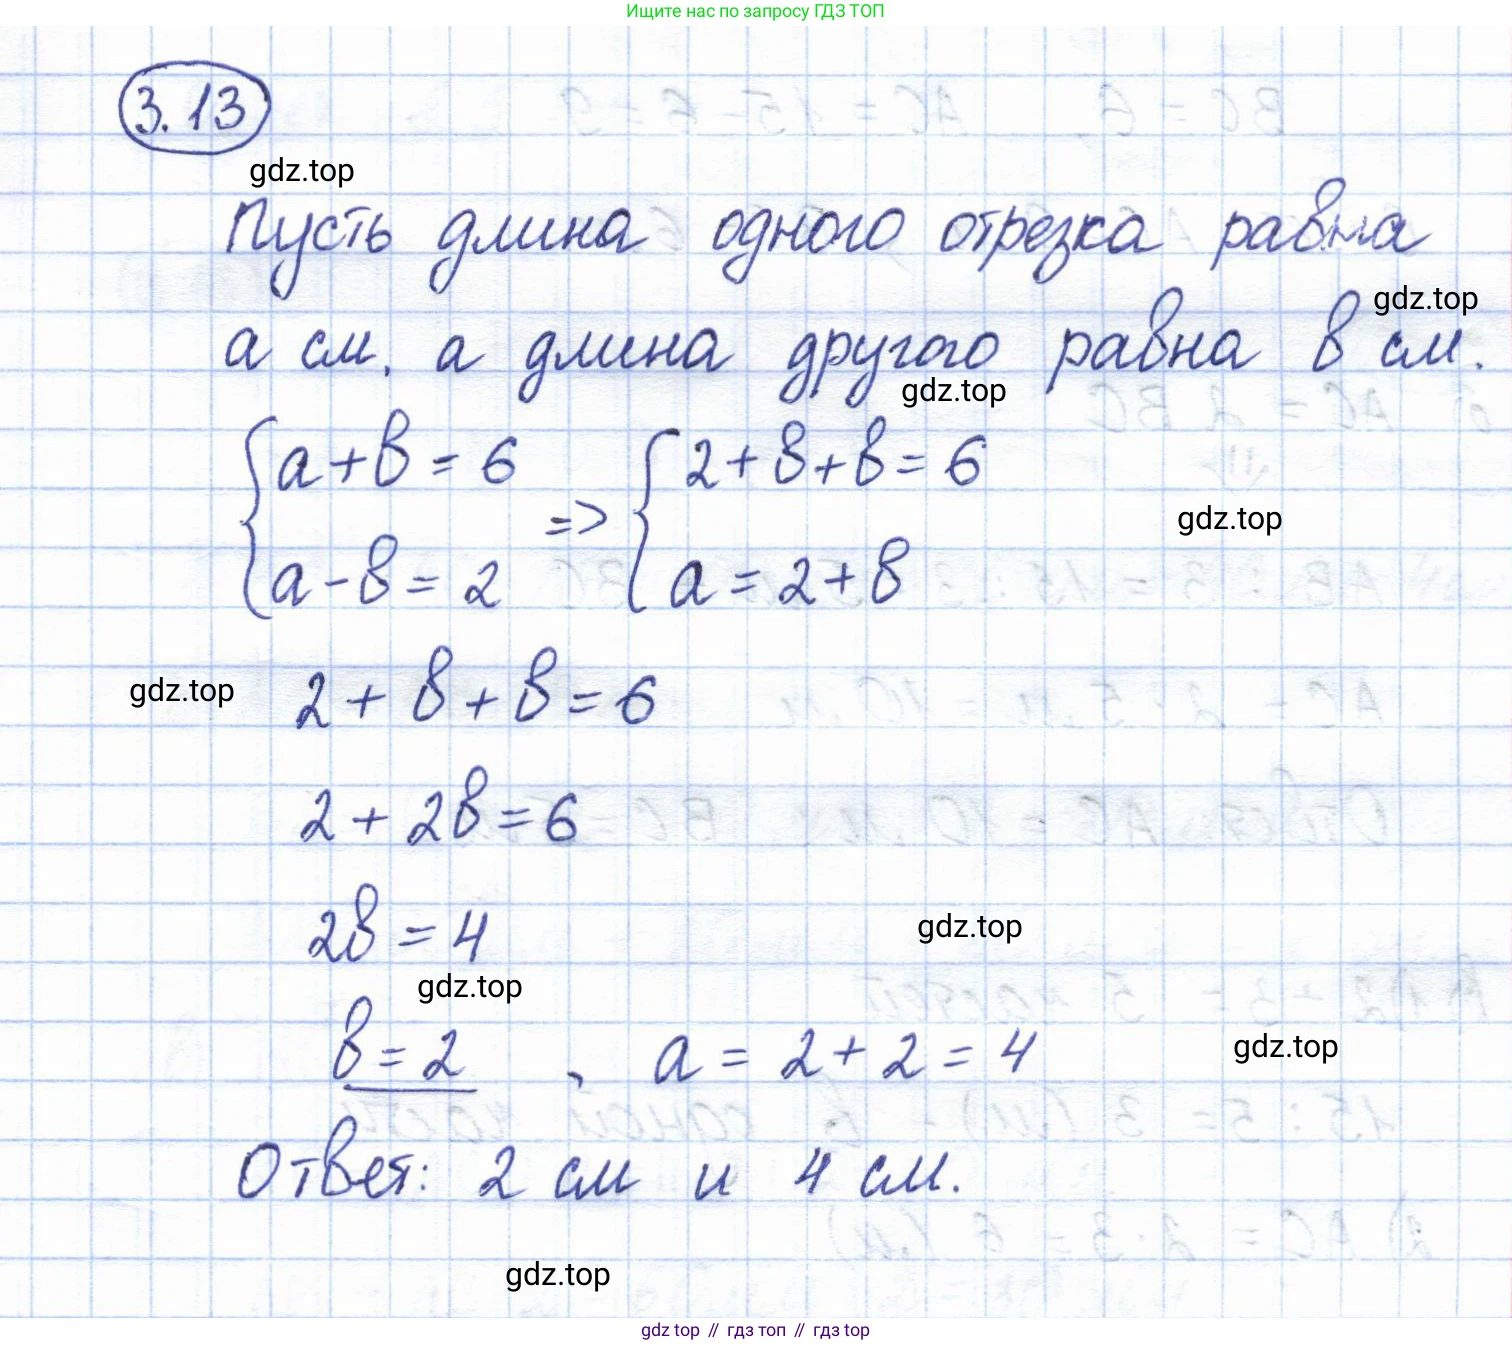 Ищите нас по запросу ГДЗ ТОП
3.13
gdz.top
Пусть длина одного отрезка равна
gdz.top
а см, а длина другого равна в см.
gdz.top
{ а+в = 6 => { 2+в+в=6
gdz.top
а-в = 2 а = 2+в
gdz.top
2 + в + в = 6
2 + 2в = 6
2в = 4
gdz.top
gdz.top
в = 2 , а = 2 + 2 = 4
gdz.top
Ответ: 2 см и 4 см.
gdz.top
gdz top // гдз топ // гдз top